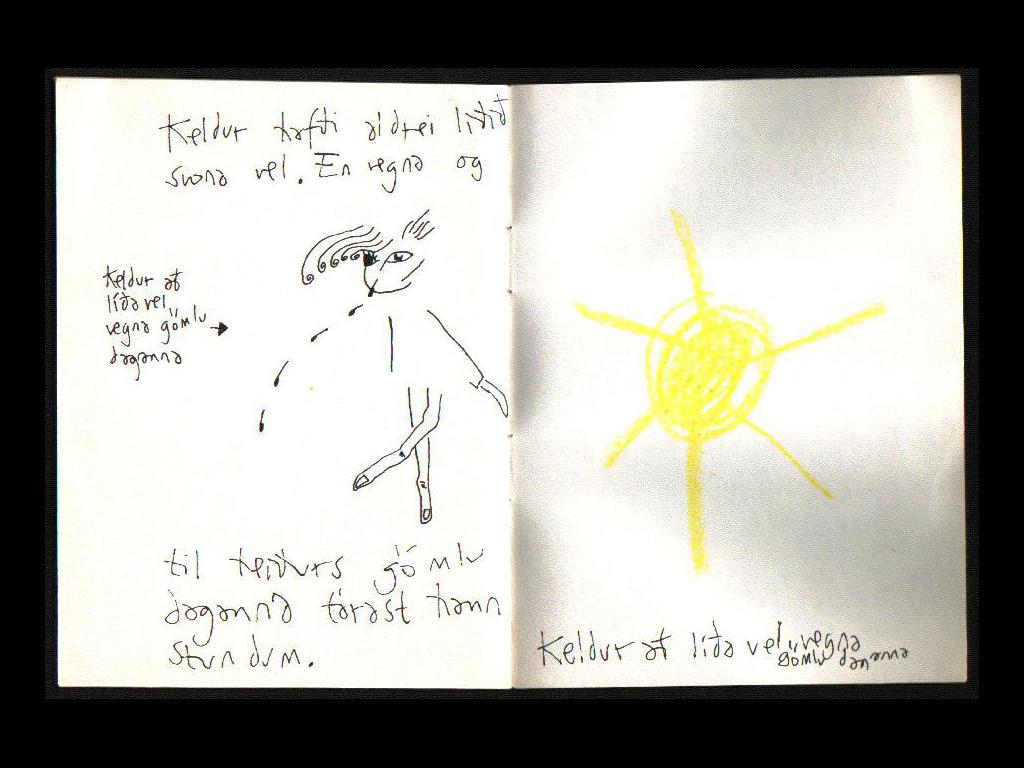 Keldur hafði aldrei liðið
svona vel. En vegna og
Keldur að
líða vel
vegna gömlu
daganna
til heiðurs gömlu
daganna tárast hann
stundum.
Keldur að líða vel, vegna
gömlu daganna